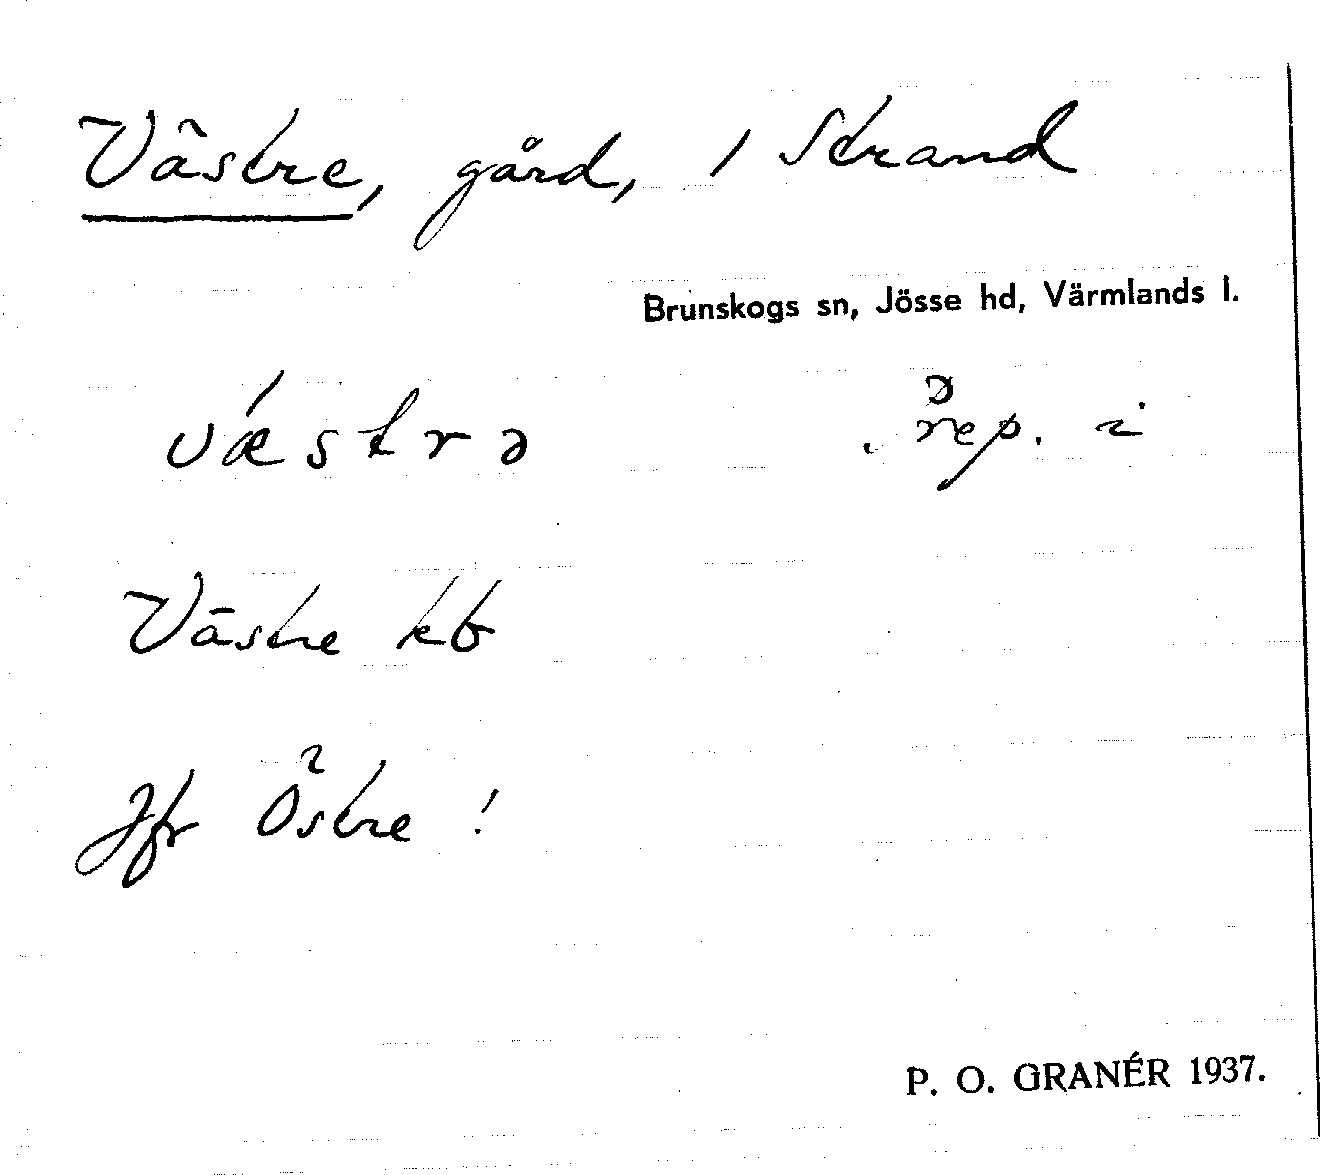 Västre, gård, i Strand
Brunskogs sn, Jösse hd, Värmlands l.
væ´strə prep. i
Västre kb
Jfr Östre !
P. O. GRANÉR 1937.